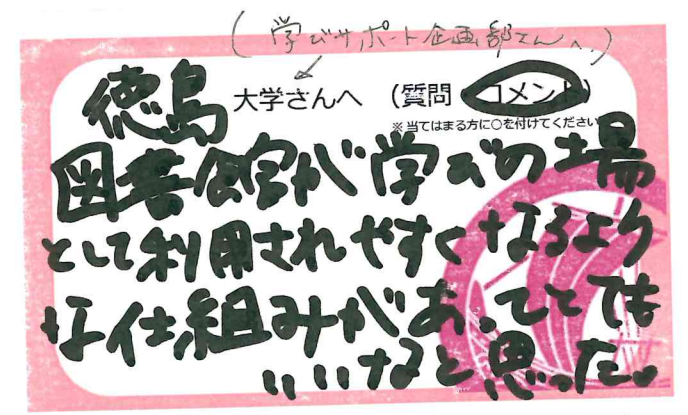 (学びサポート企画部さんへ)
徳島大学さんへ (質問・コメント)
※当てはまる方に○を付けてください
図書館が学びの場
として利用されやすくなるより
な仕組みがあってとても
いいなと思った。